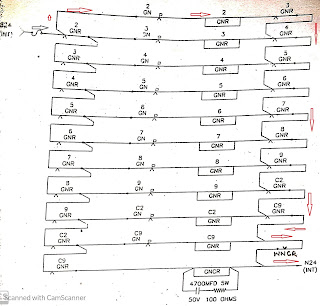 2 3
GN 2 GNR
B24 GNR
(INT) 2 3 4
GNR GN 3 GNR
GNR
3 4 5
GNR GN 4 GNR
GNR
4 5 6
GNR GN 5 GNR
GNR
5 6 7
GNR GN 6 GNR
GNR
6 7 8
GNR GN 7 GNR
GNR
7 8 9
GNR GN 8 GNR
GNR
8 9 C2
GNR GN 9 GNR
GNR
9 C2 C9
GNR GN C2 GNR
GNR
C2 C9
GNR GN C9
GNR WNCR
C9 N24
GNR GNCR (INT)
4700MFD 5W
50V 100 OHMS
Scanned with CamScanner